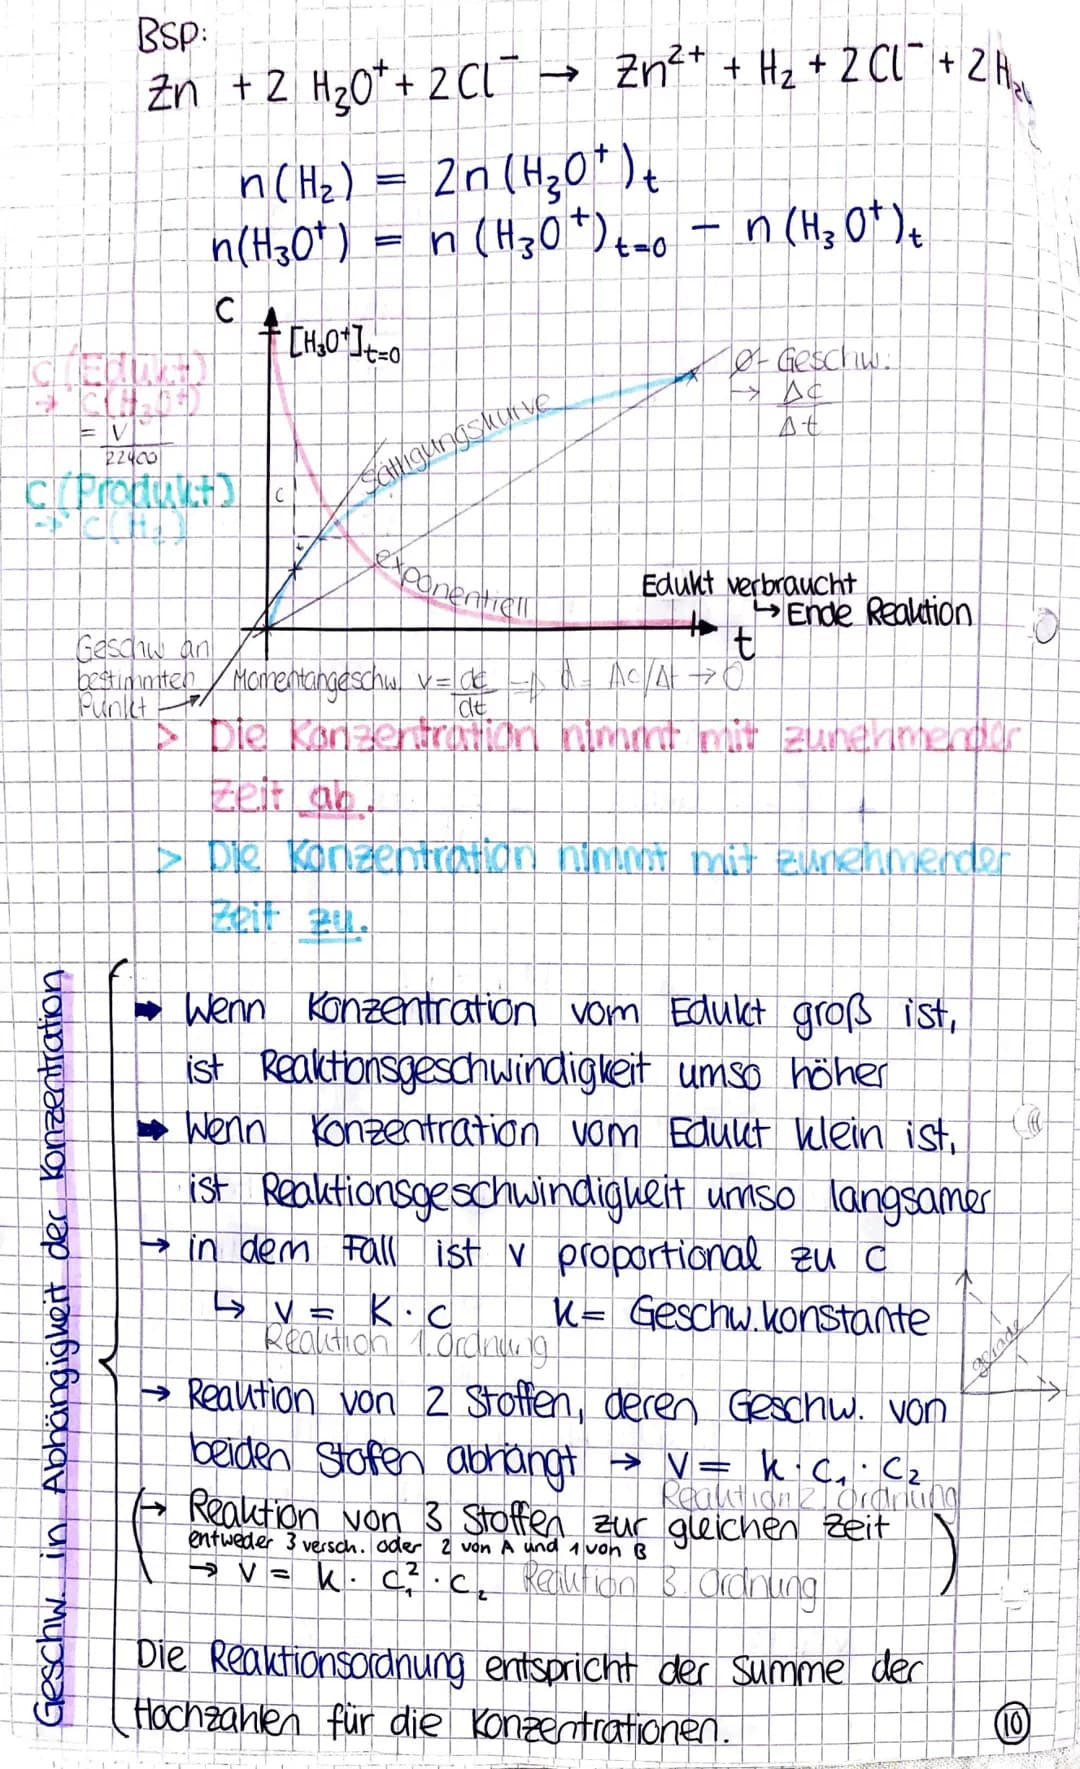 BSP:
Zn + 2 H₃O⁺ + 2 Cl⁻ → Zn²⁺ + H₂ + 2 Cl⁻ + 2 H₂
n(H₂) = 2n (H₃O⁺)t
n(H₃O⁺) = n (H₃O⁺)t=0 − n (H₃O⁺)t
C
[H₃O⁺]t=0
c (Edukt)
→ C(H₃O⁺)
= V
22400
c (Produkt)
→ C(H₂)
c
Sättigungskurve
Ø- Geschw.
→ Δc
Δt
exponentiell
Edukt verbraucht
↳ Ende Reaktion
t
Geschw an
bestimmten
Punkt →
Momentangeschw. v = dc
dt
→ d = Δc/Δt → 0
> Die Konzentration nimmt mit zunehmender
Zeit ab.
> Die Konzentration nimmt mit zunehmender
Zeit zu.
Geschw. in Abhängigkeit der Konzentration
➡ Wenn Konzentration vom Edukt groß ist,
ist Reaktionsgeschwindigkeit umso höher
➡ Wenn Konzentration vom Edukt klein ist,
ist Reaktionsgeschwindigkeit umso langsamer
→ in dem Fall ist v proportional zu c
↳ v = K · c K = Geschw.konstante
Reaktion 1. Ordnung
gerade
→ Reaktion von 2 Stoffen, deren Geschw. von
beiden Stofen abhängt → v = k · c₁ · c₂
Reaktion 2. Ordnung
(→ Reaktion von 3 Stoffen zur gleichen Zeit
entweder 3 versch. oder 2 von A und 1 von B
→ v = k · c₁² · c₂ Reaktion 3. Ordnung)
Die Reaktionsordnung entspricht der Summe der
Hochzahlen für die Konzentrationen.
10